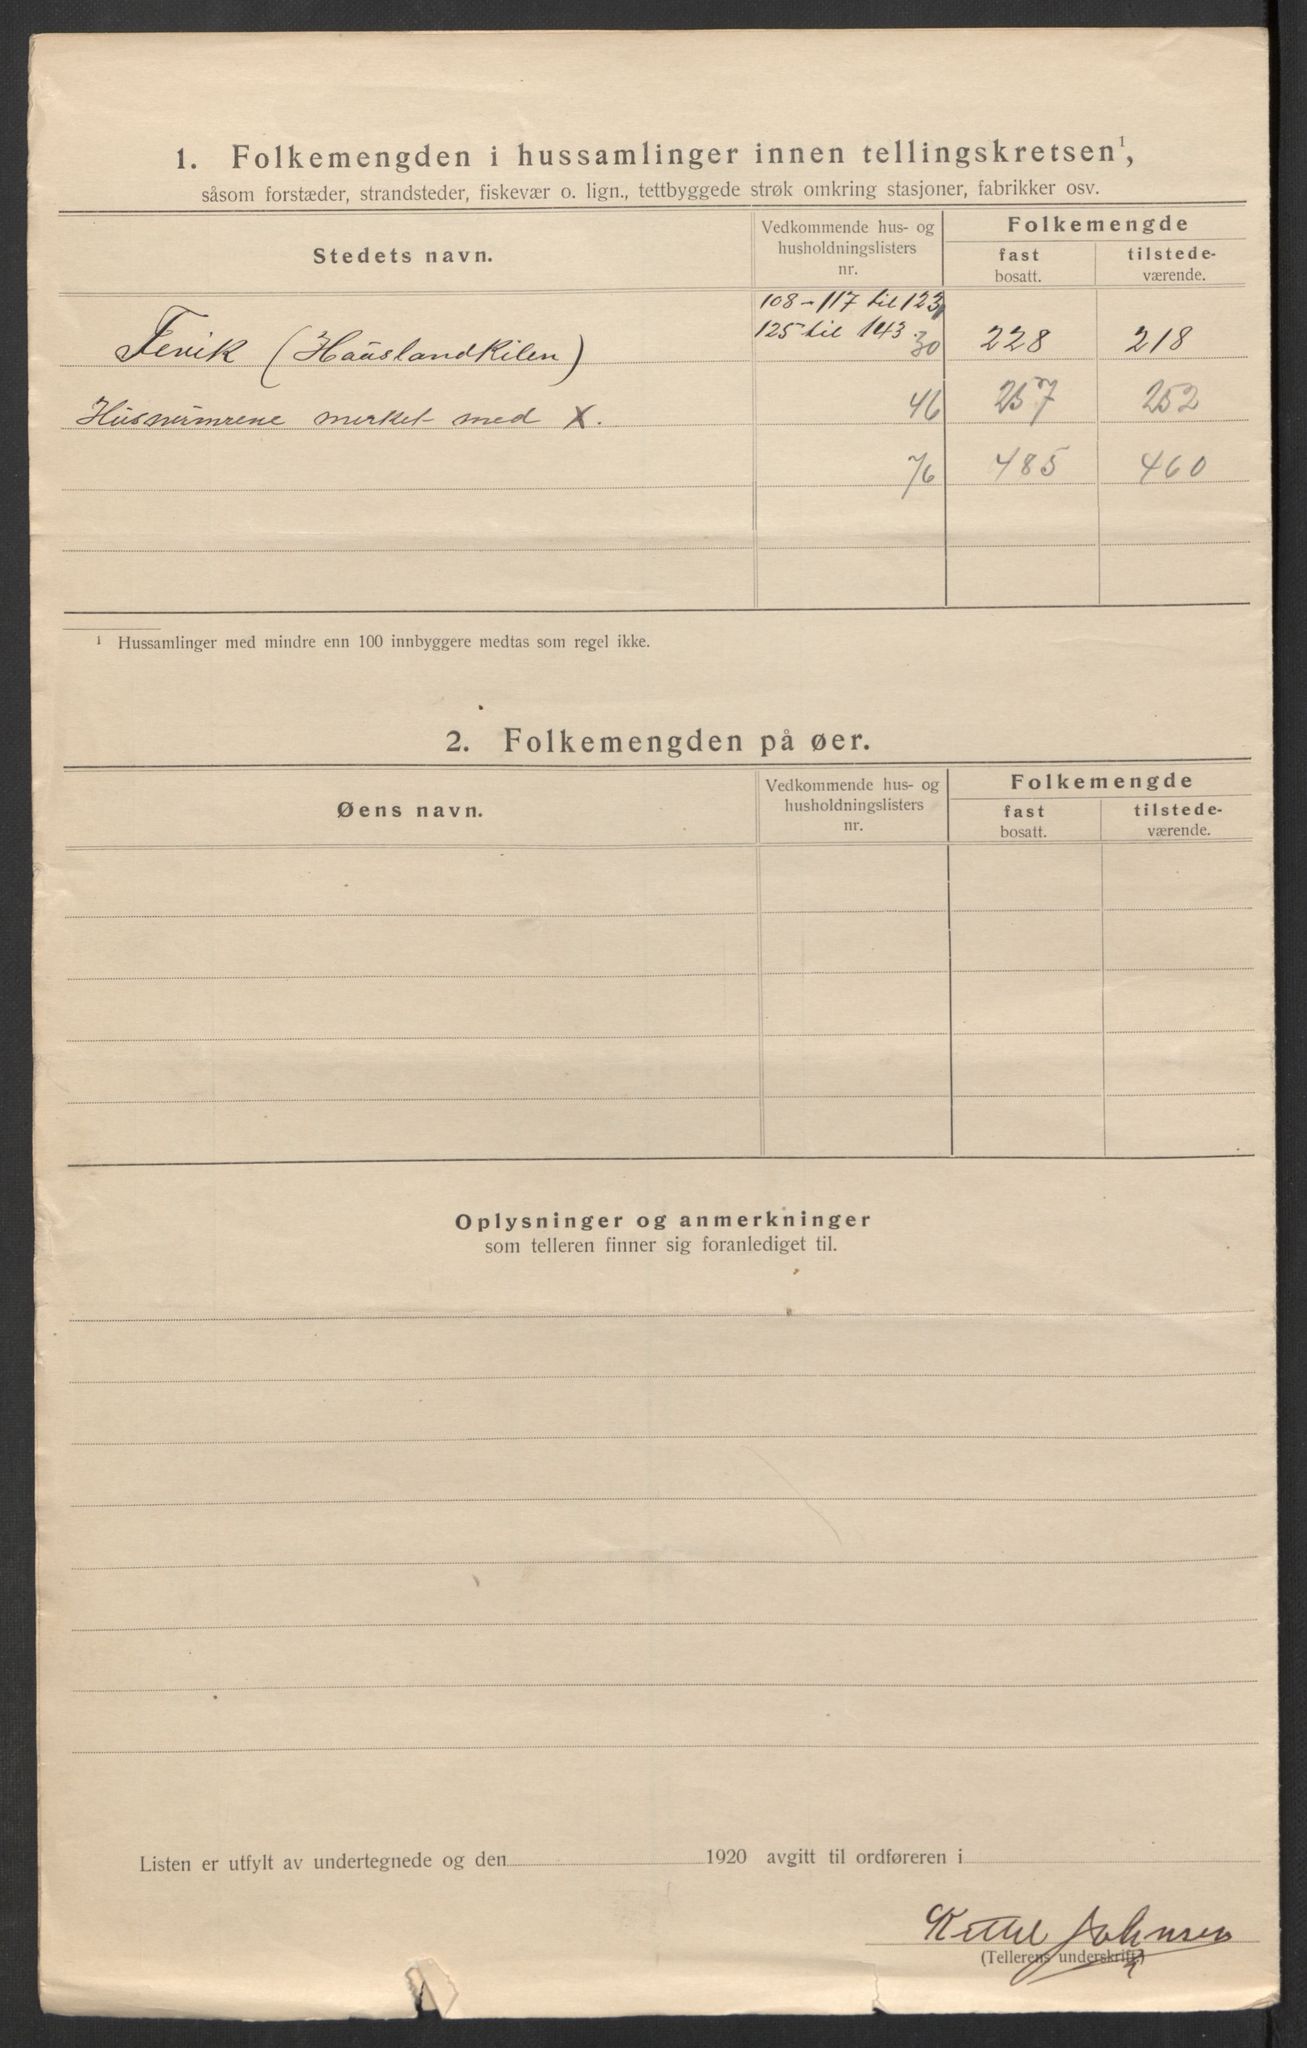 1. Folkemengden i hussamlinger innen tellingskretsen¹,
såsom forstæder, strandsteder, fiskevær o. lign., tettbyggede strøk omkring stasjoner, fabrikker osv.
Stedets navn. Vedkommende hus- og husholdningslisters nr. Folkemengde
fast bosatt. tilstede-værende.
108 - 117 til 123
125 til 143
Fevik (Haaslandkilen) 30 228 218
Husnumrene merket med X. 46 257 252
76 485 460
¹ Hussamlinger med mindre enn 100 innbyggere medtas som regel ikke.
2. Folkemengden på øer.
Øens navn. Vedkommende hus- og husholdningslisters nr. Folkemengde
fast bosatt. tilstede-værende.
Oplysninger og anmerkninger
som telleren finner sig foranlediget til.
Listen er utfylt av undertegnede og den 1920 avgitt til ordføreren i
Kittil Johnsen
(Tellerens underskrift)